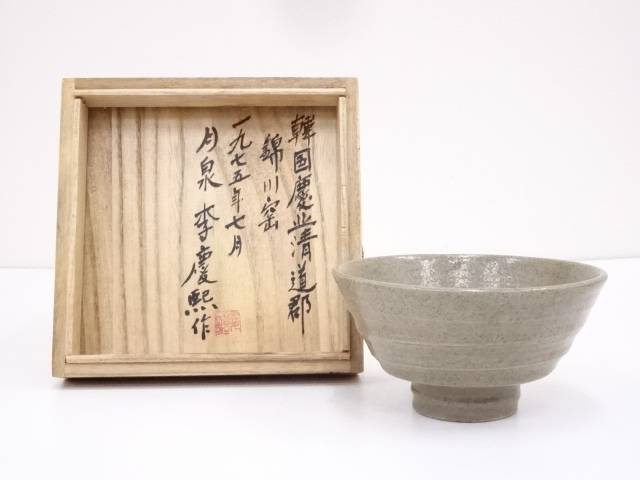 韓国慶北清道郡
錦川窯
一九七五年七月
月泉 李慶熙作